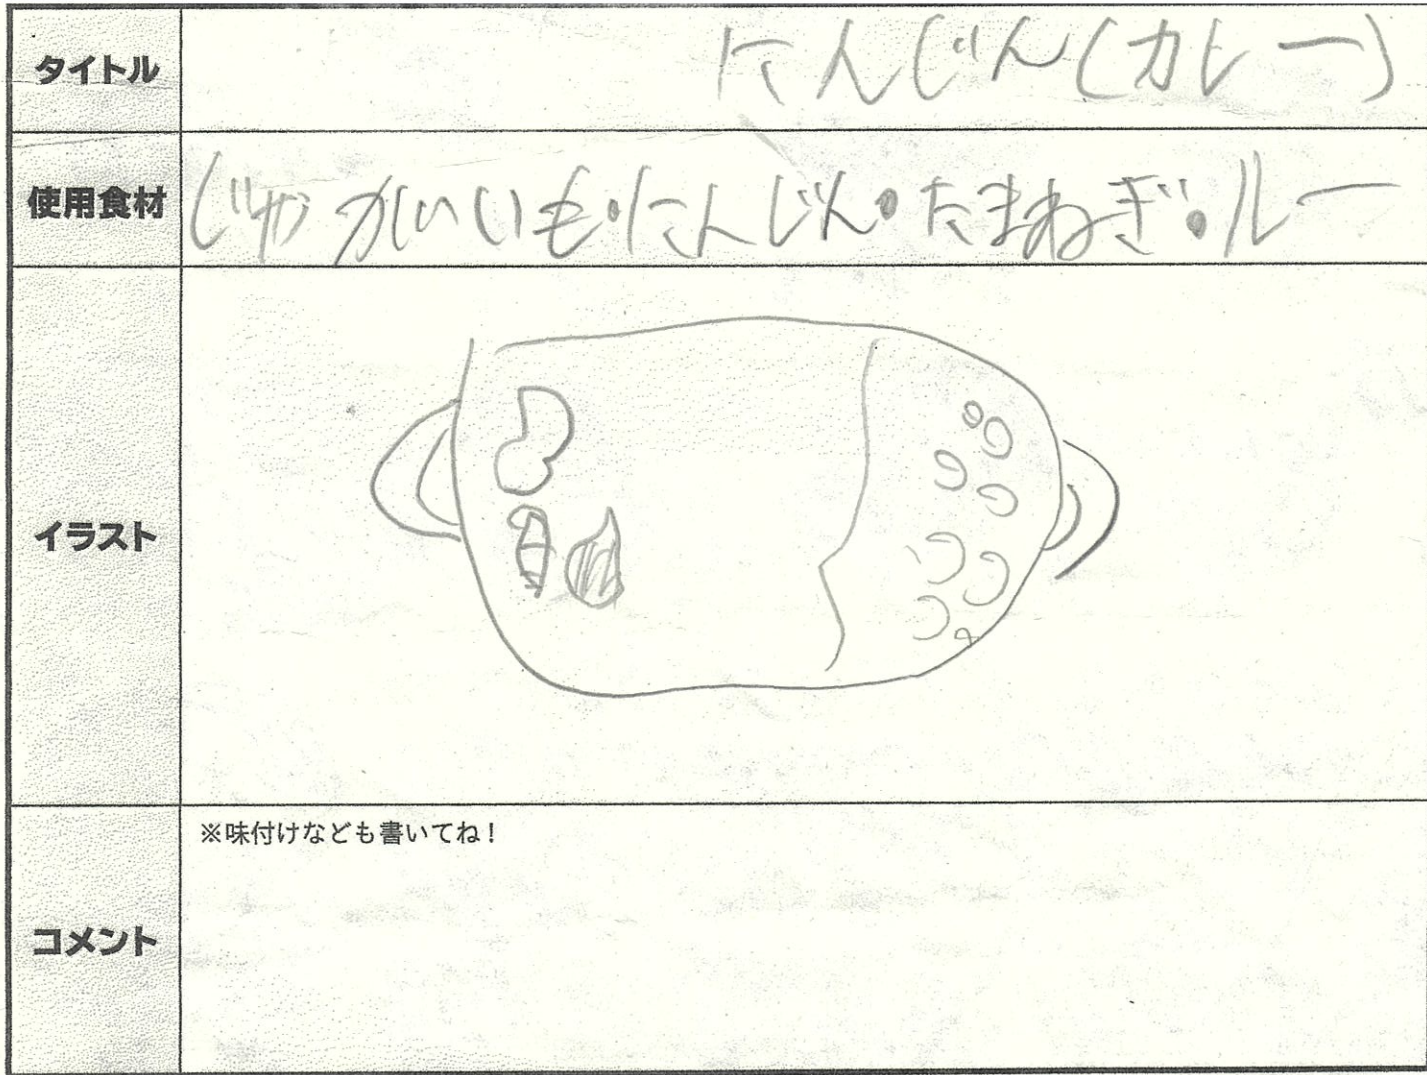 タイトル
にんじん(カレー)
使用食材
じゃがいいも・にんじん・たまねぎ・ルー
イラスト
コメント
※味付けなども書いてね!